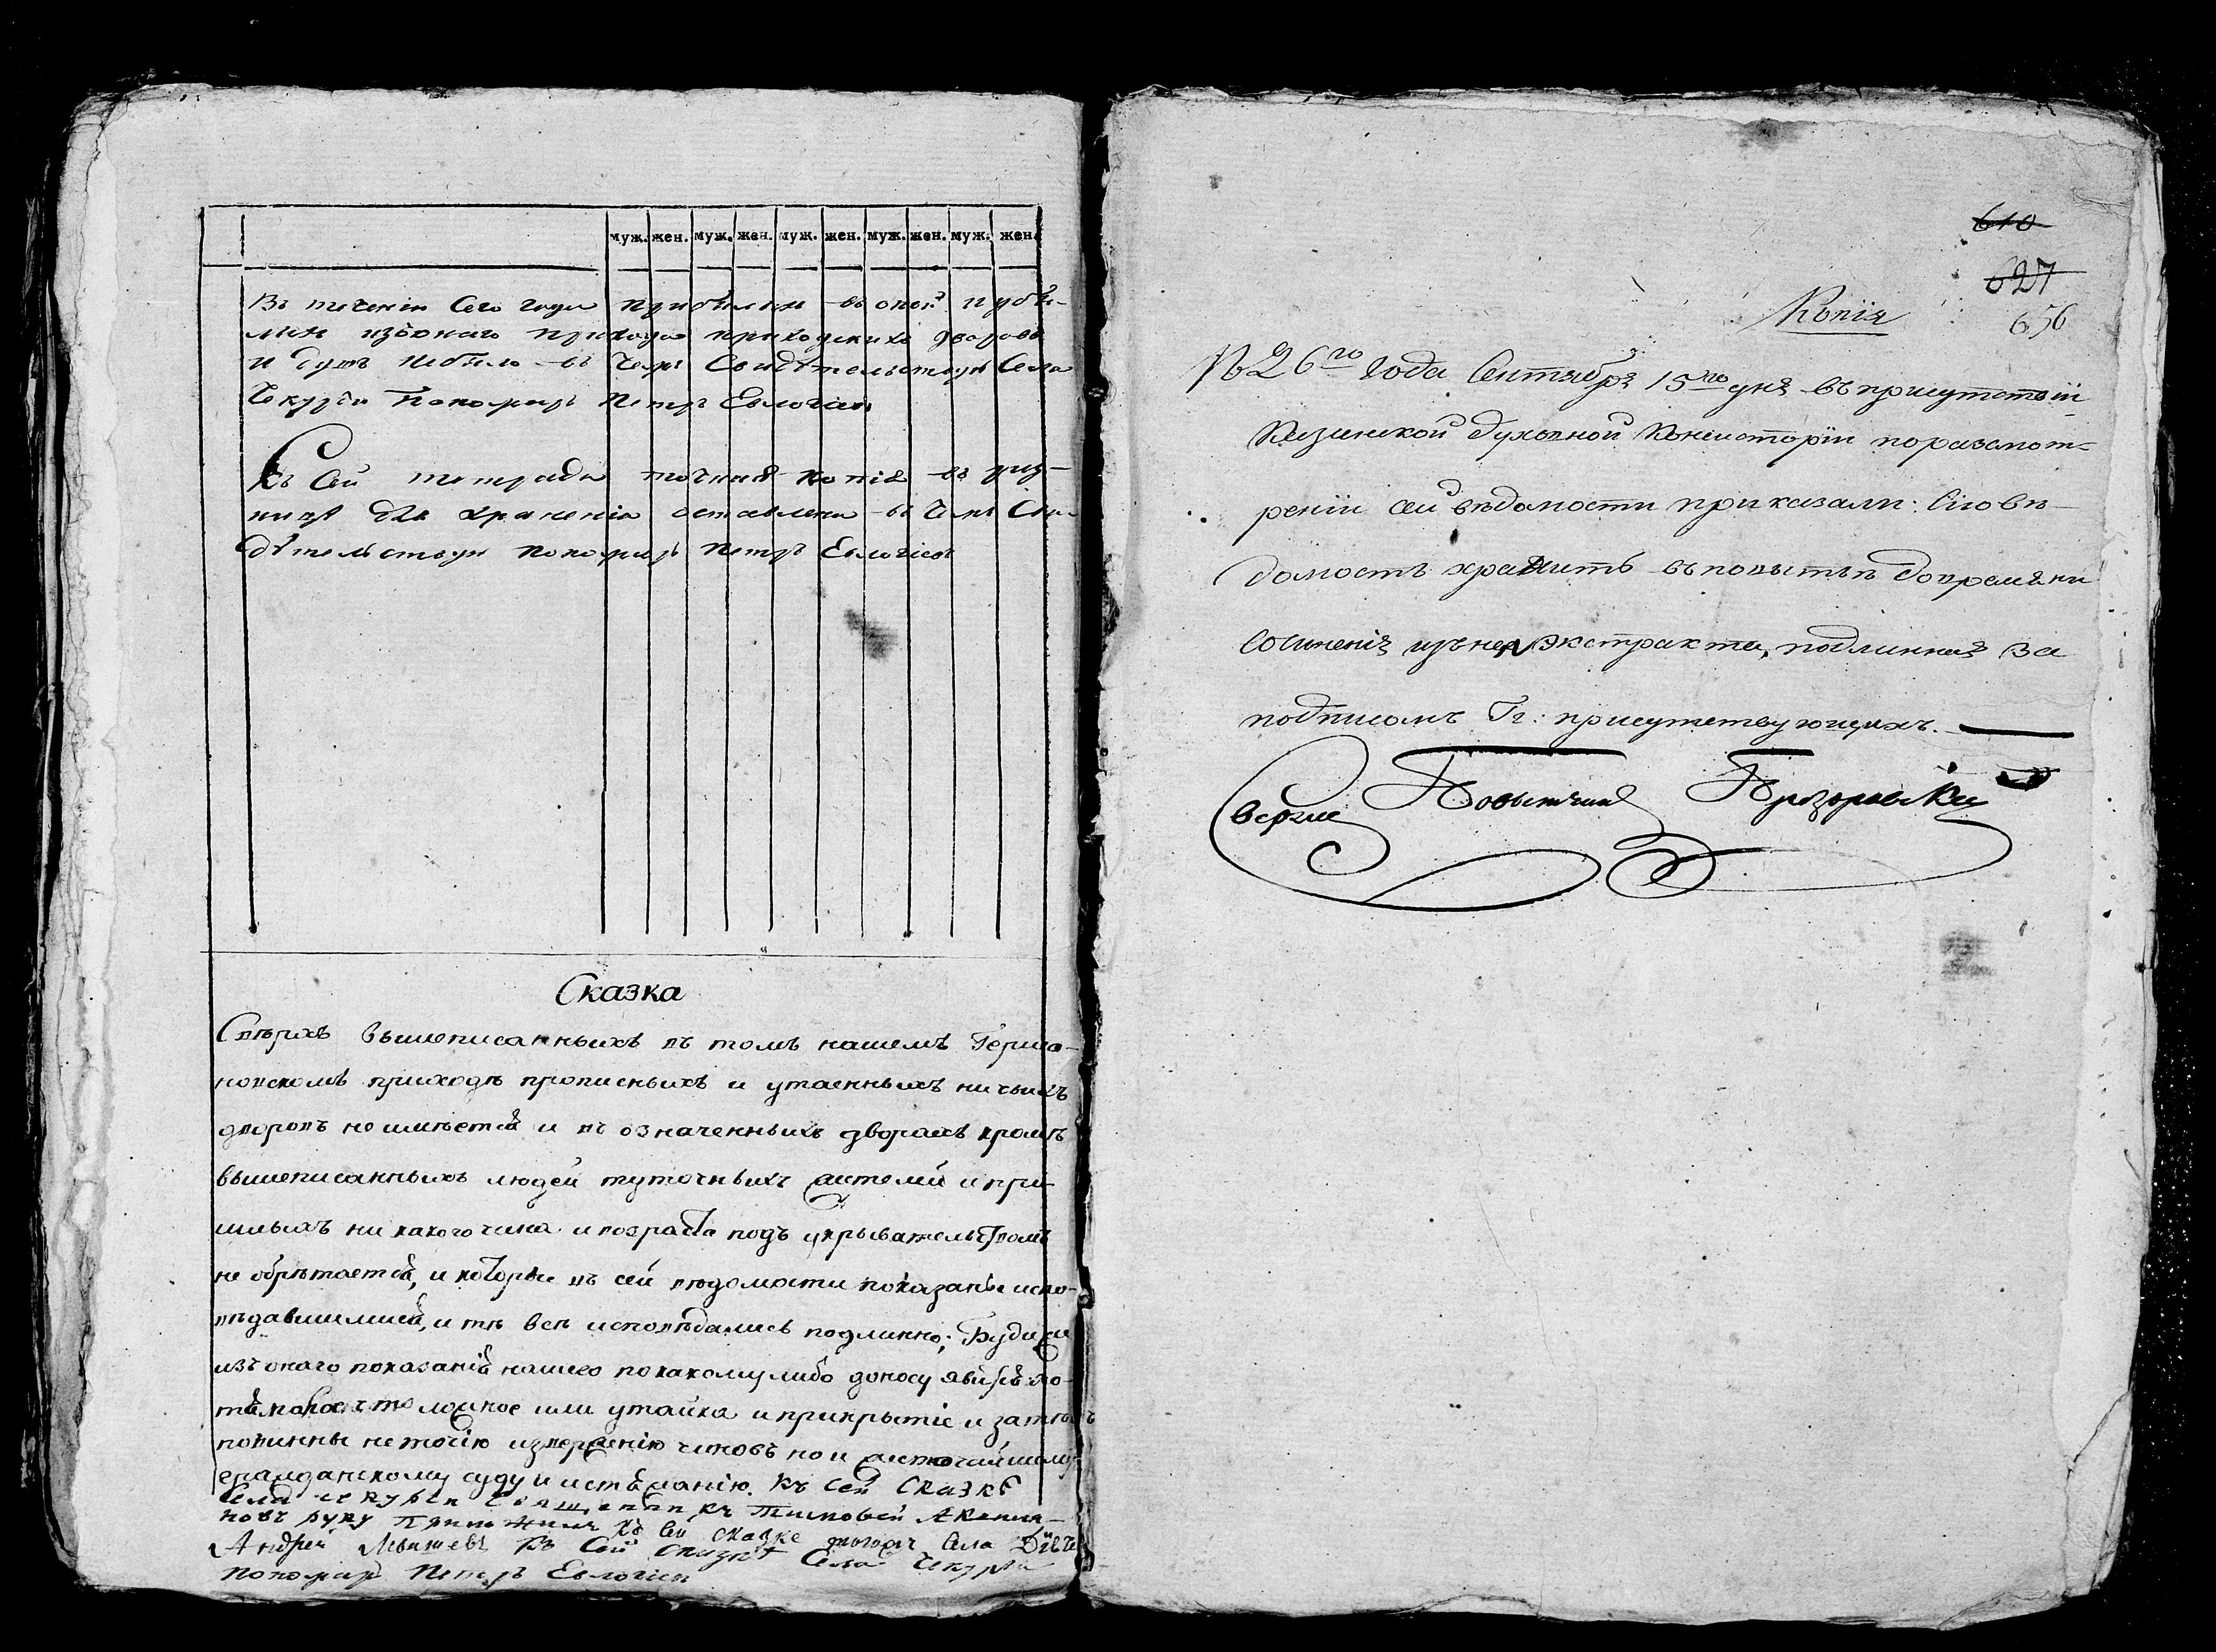 муж. жен. муж. жен. муж. жен. муж. жен. муж. жен.
Въ теченіи Сего года прибылыхъ въ оной и убы-
лыхъ изъонаго прихода приходскихъ дворовъ
и душъ небыло въ чемъ Свидѣтельствую Села
Чекурги Пономарь Петръ Евлогіевъ
Къ Сей тетради точная копія въ риз-
ницѣ для храненія оставлена въ чемъ Сви-
дѣтельствую пономарь Петръ Евлогіевъ
Сказка
Сверхъ вышеписанныхъ въ томъ нашемъ Герма-
новскомъ приходѣ прописныхъ и утаенныхъ ничьихъ
дворовъ не имѣется и въ означенныхъ дворахъ кромѣ
вышеписанныхъ людей туточныхъ жителей и при-
шлыхъ ни какого чина и возраста подъ укрывательствомъ
не обрѣтается, и которые въ сей вѣдомости показаны испо-
вѣдавшимися, и тѣ всѣ исповѣдались подлинно; Буди же
изъ онаго показанія нашего по какому либо доносу явится хо-
тя мало что ложное или утайка и прикрытіе и за то
повинны не точію изверженію чиновъ но и жесточайшему
гражданскому суду и истязанію. Къ сей Сказкѣ
Села Чекурги Священникъ Тимофей
новъ руку приложилъ Къ сей сказке тогожъ Села Дьячекъ
Андрей Къ Сей сказкѣ Села Чекурги
пономарь Петръ Евлогіевъ
610
627
656
Копія
1826го Года Сентября 15го дня въ присутствіи
Казанской Духовной Консисторіи по разсмот-
реніи сей вѣдомости приказали: Сію вѣ-
домость хранить въ повытьѣ до времяни
сочиненія изъ нея экстракта, подлинная за
подписомъ Гг: присутствующихъ.
Верно Повытчикъ